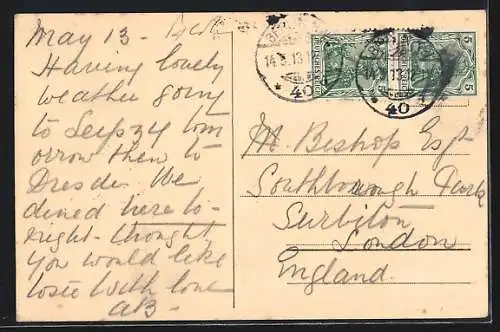 May 13 - 
Having lovely
weather going
to Leipzig tom
orrow then to
Dresden We
dined here to-
night - thought
you would like
to see with love
AB -
M. Bishop Esq.
Southborough Park
Surbiton
London
England.
DEUTSCHES REICH
5
5
14.5.13
14.5.13
* 40
* 40